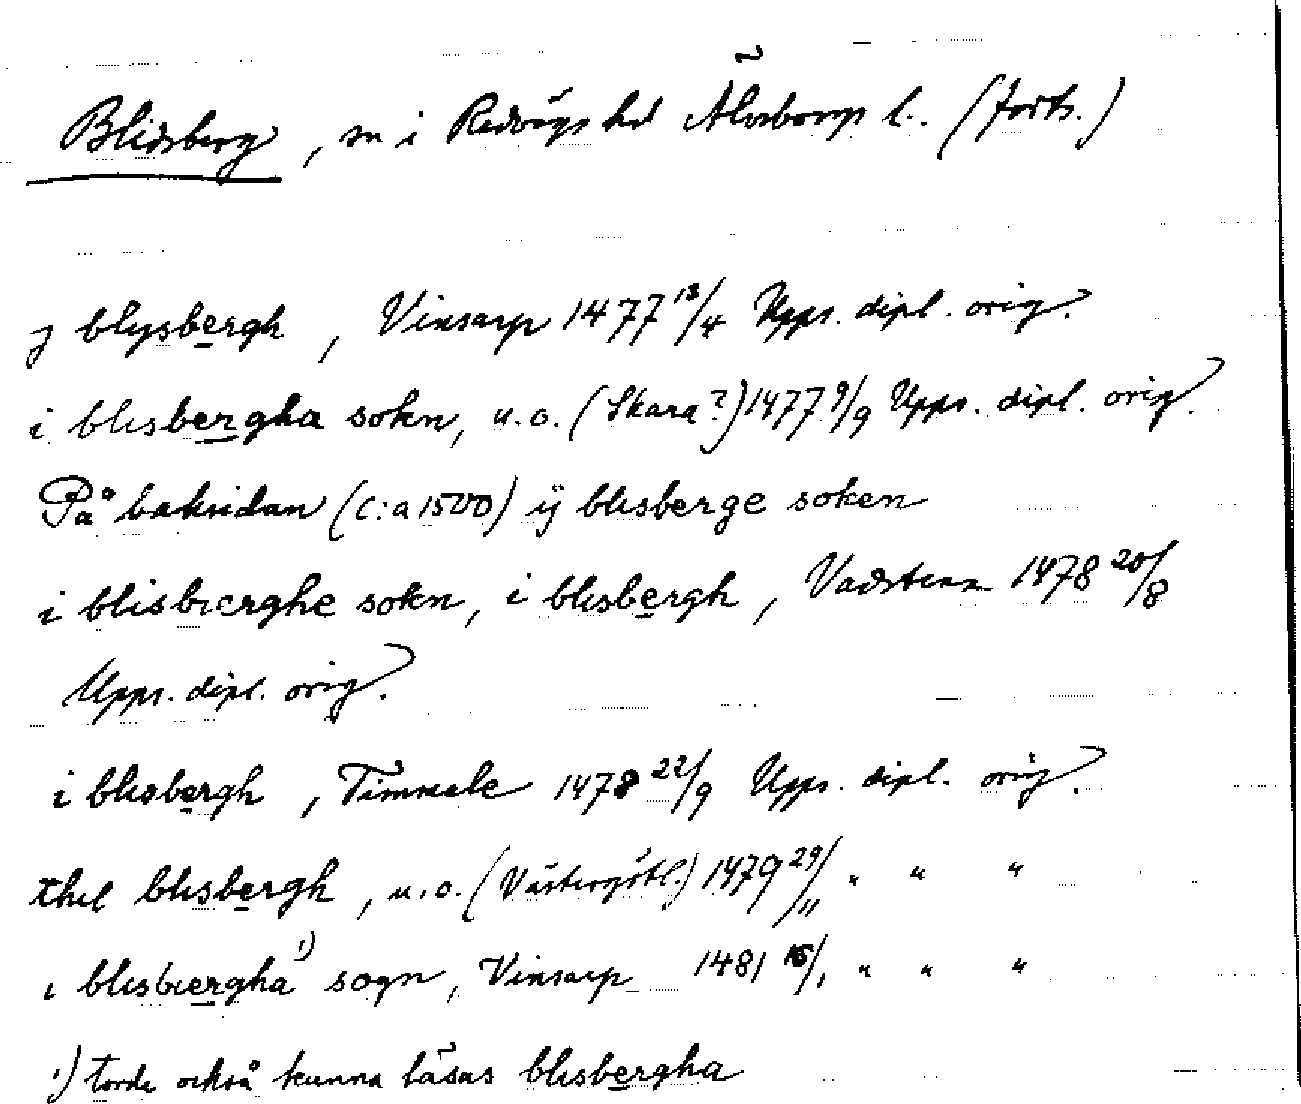 Blidsberg, sn i Redvägs hd Älvsborgs l. (forts.)
j blysbergh, Vinsarp 1477 13/4 Upps. dipl. orig.
i blisbergha sokn, u.o. (Skara?) 1477 9/9 Upps. dipl. orig.
På baksidan (c:a 1500) ij blisberge soken
i blisbierghe sokn, i blisbergh, Vadstena 1478 20/8
Upps. dipl. orig.
i blisbergh, Timmele 1478 22/9 Upps. dipl. orig.
thil blisbergh, u.o. (Västergötl.) 1479 29/11 " " "
i blisbiergha 1) sogn, Vinsarp 1481 15/1 " " "
1) torde också kunna läsas blisbergha